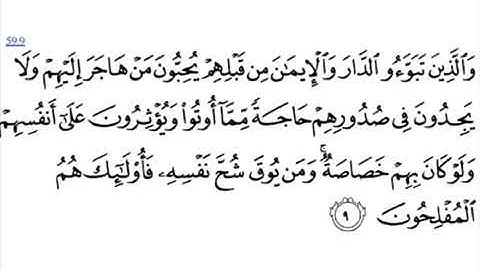 59:9
وَالَّذِينَ تَبَوَّءُو الدَّارَ وَالْإِيمَـٰنَ مِن قَبْلِهِمْ يُحِبُّونَ مَنْ هَاجَرَ إِلَيْهِمْ وَلَا
يَجِدُونَ فِى صُدُورِهِمْ حَاجَةً مِّمَّآ أُوتُوا۟ وَيُؤْثِرُونَ عَلَىٰٓ أَنفُسِهِمْ
وَلَوْ كَانَ بِهِمْ خَصَاصَةٌ ۚ وَمَن يُوقَ شُحَّ نَفْسِهِۦ فَأُو۟لَـٰٓئِكَ هُمُ
الْمُفْلِحُونَ ٩